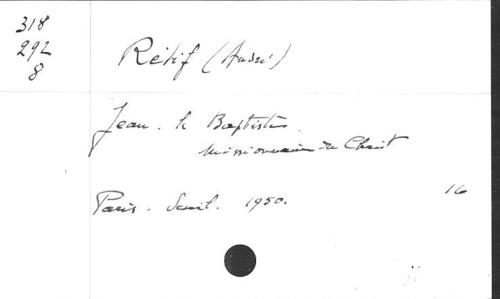 318
292
8
Rétif (André)
Jean. le Baptiste.
Missionnaire du Christ
Paris. Seuil. 1950.
16